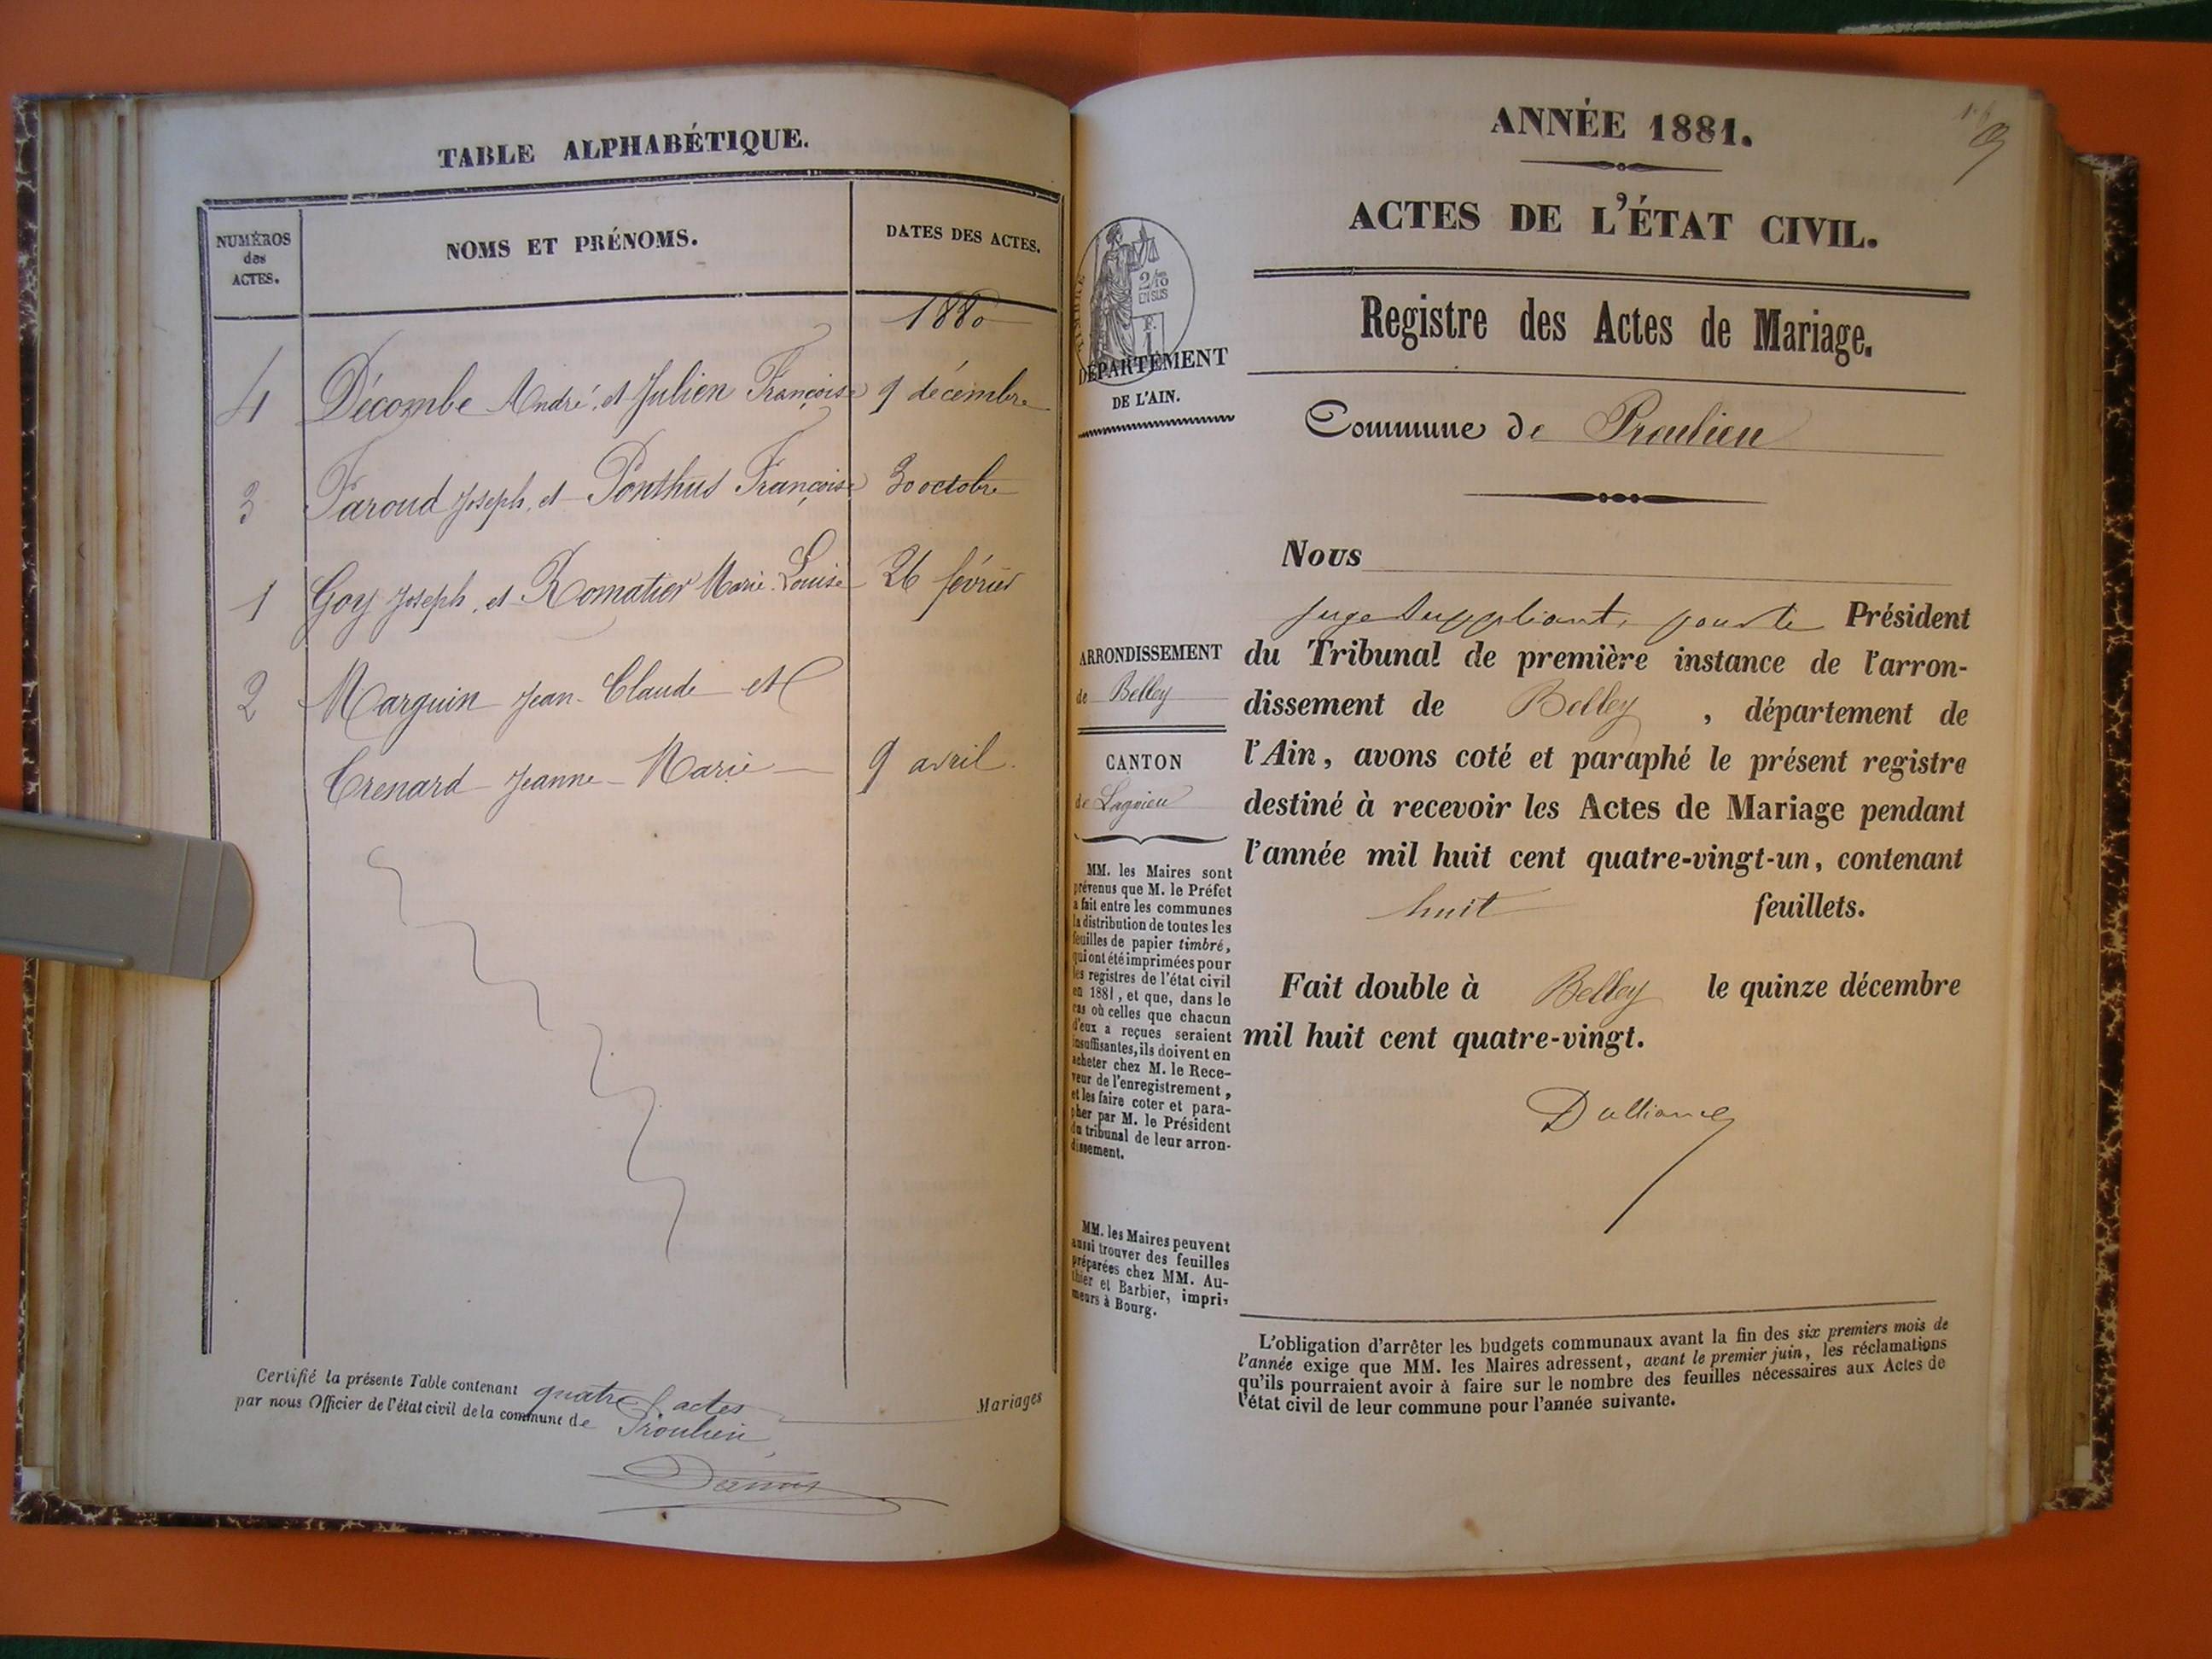 TABLE ALPHABÉTIQUE.
NUMÉROS
des
ACTES.
NOMS ET PRÉNOMS.
DATES DES ACTES.
1880
4 Décombe André, et Julien Françoise 9 décembre
3 Faroud Joseph, et Ponthus Françoise 30 octobre
1 Goy Joseph, et Romatier Marie-Louise 26 février
2 Marguin Jean-Claude et
Trenard Jeanne-Marie 9 avril.
Certifié la présente Table contenant quatre actes Mariages
par nous Officier de l'état civil de la commune de Proulieu
ANNÉE 1881.
ACTES DE L'ÉTAT CIVIL.
TIMBRE
2/10
EN SUS
F.
1
DÉPARTEMENT
DE L'AIN.
Registre des Actes de Mariage.
Commune de Proulieu
ARRONDISSEMENT
de Belley
CANTON
de Lagnieu
MM. les Maires sont
prévenus que M. le Préfet
a fait entre les communes
la distribution de toutes les
feuilles de papier timbré,
qui ont été imprimées pour
les registres de l'état civil
en 1881, et que, dans le
cas où celles que chacun
d'eux a reçues seraient
insuffisantes, ils doivent en
acheter chez M. le Rece-
veur de l'enregistrement,
et les faire coter et para-
pher par M. le Président
du tribunal de leur arron-
dissement.
MM. les Maires peuvent
aussi trouver des feuilles
préparées chez MM. Au-
thier et Barbier, impri-
meurs à Bourg.
Nous
juge suppléant, pour le Président
du Tribunal de première instance de l'arron-
dissement de Belley, département de
l'Ain, avons coté et paraphé le présent registre
destiné à recevoir les Actes de Mariage pendant
l'année mil huit cent quatre-vingt-un, contenant
huit feuillets.
Fait double à Belley le quinze décembre
mil huit cent quatre-vingt.
L'obligation d'arrêter les budgets communaux avant la fin des six premiers mois de
l'année exige que MM. les Maires adressent, avant le premier juin, les réclamations
qu'ils pourraient avoir à faire sur le nombre des feuilles nécessaires aux Actes de
l'état civil de leur commune pour l'année suivante.